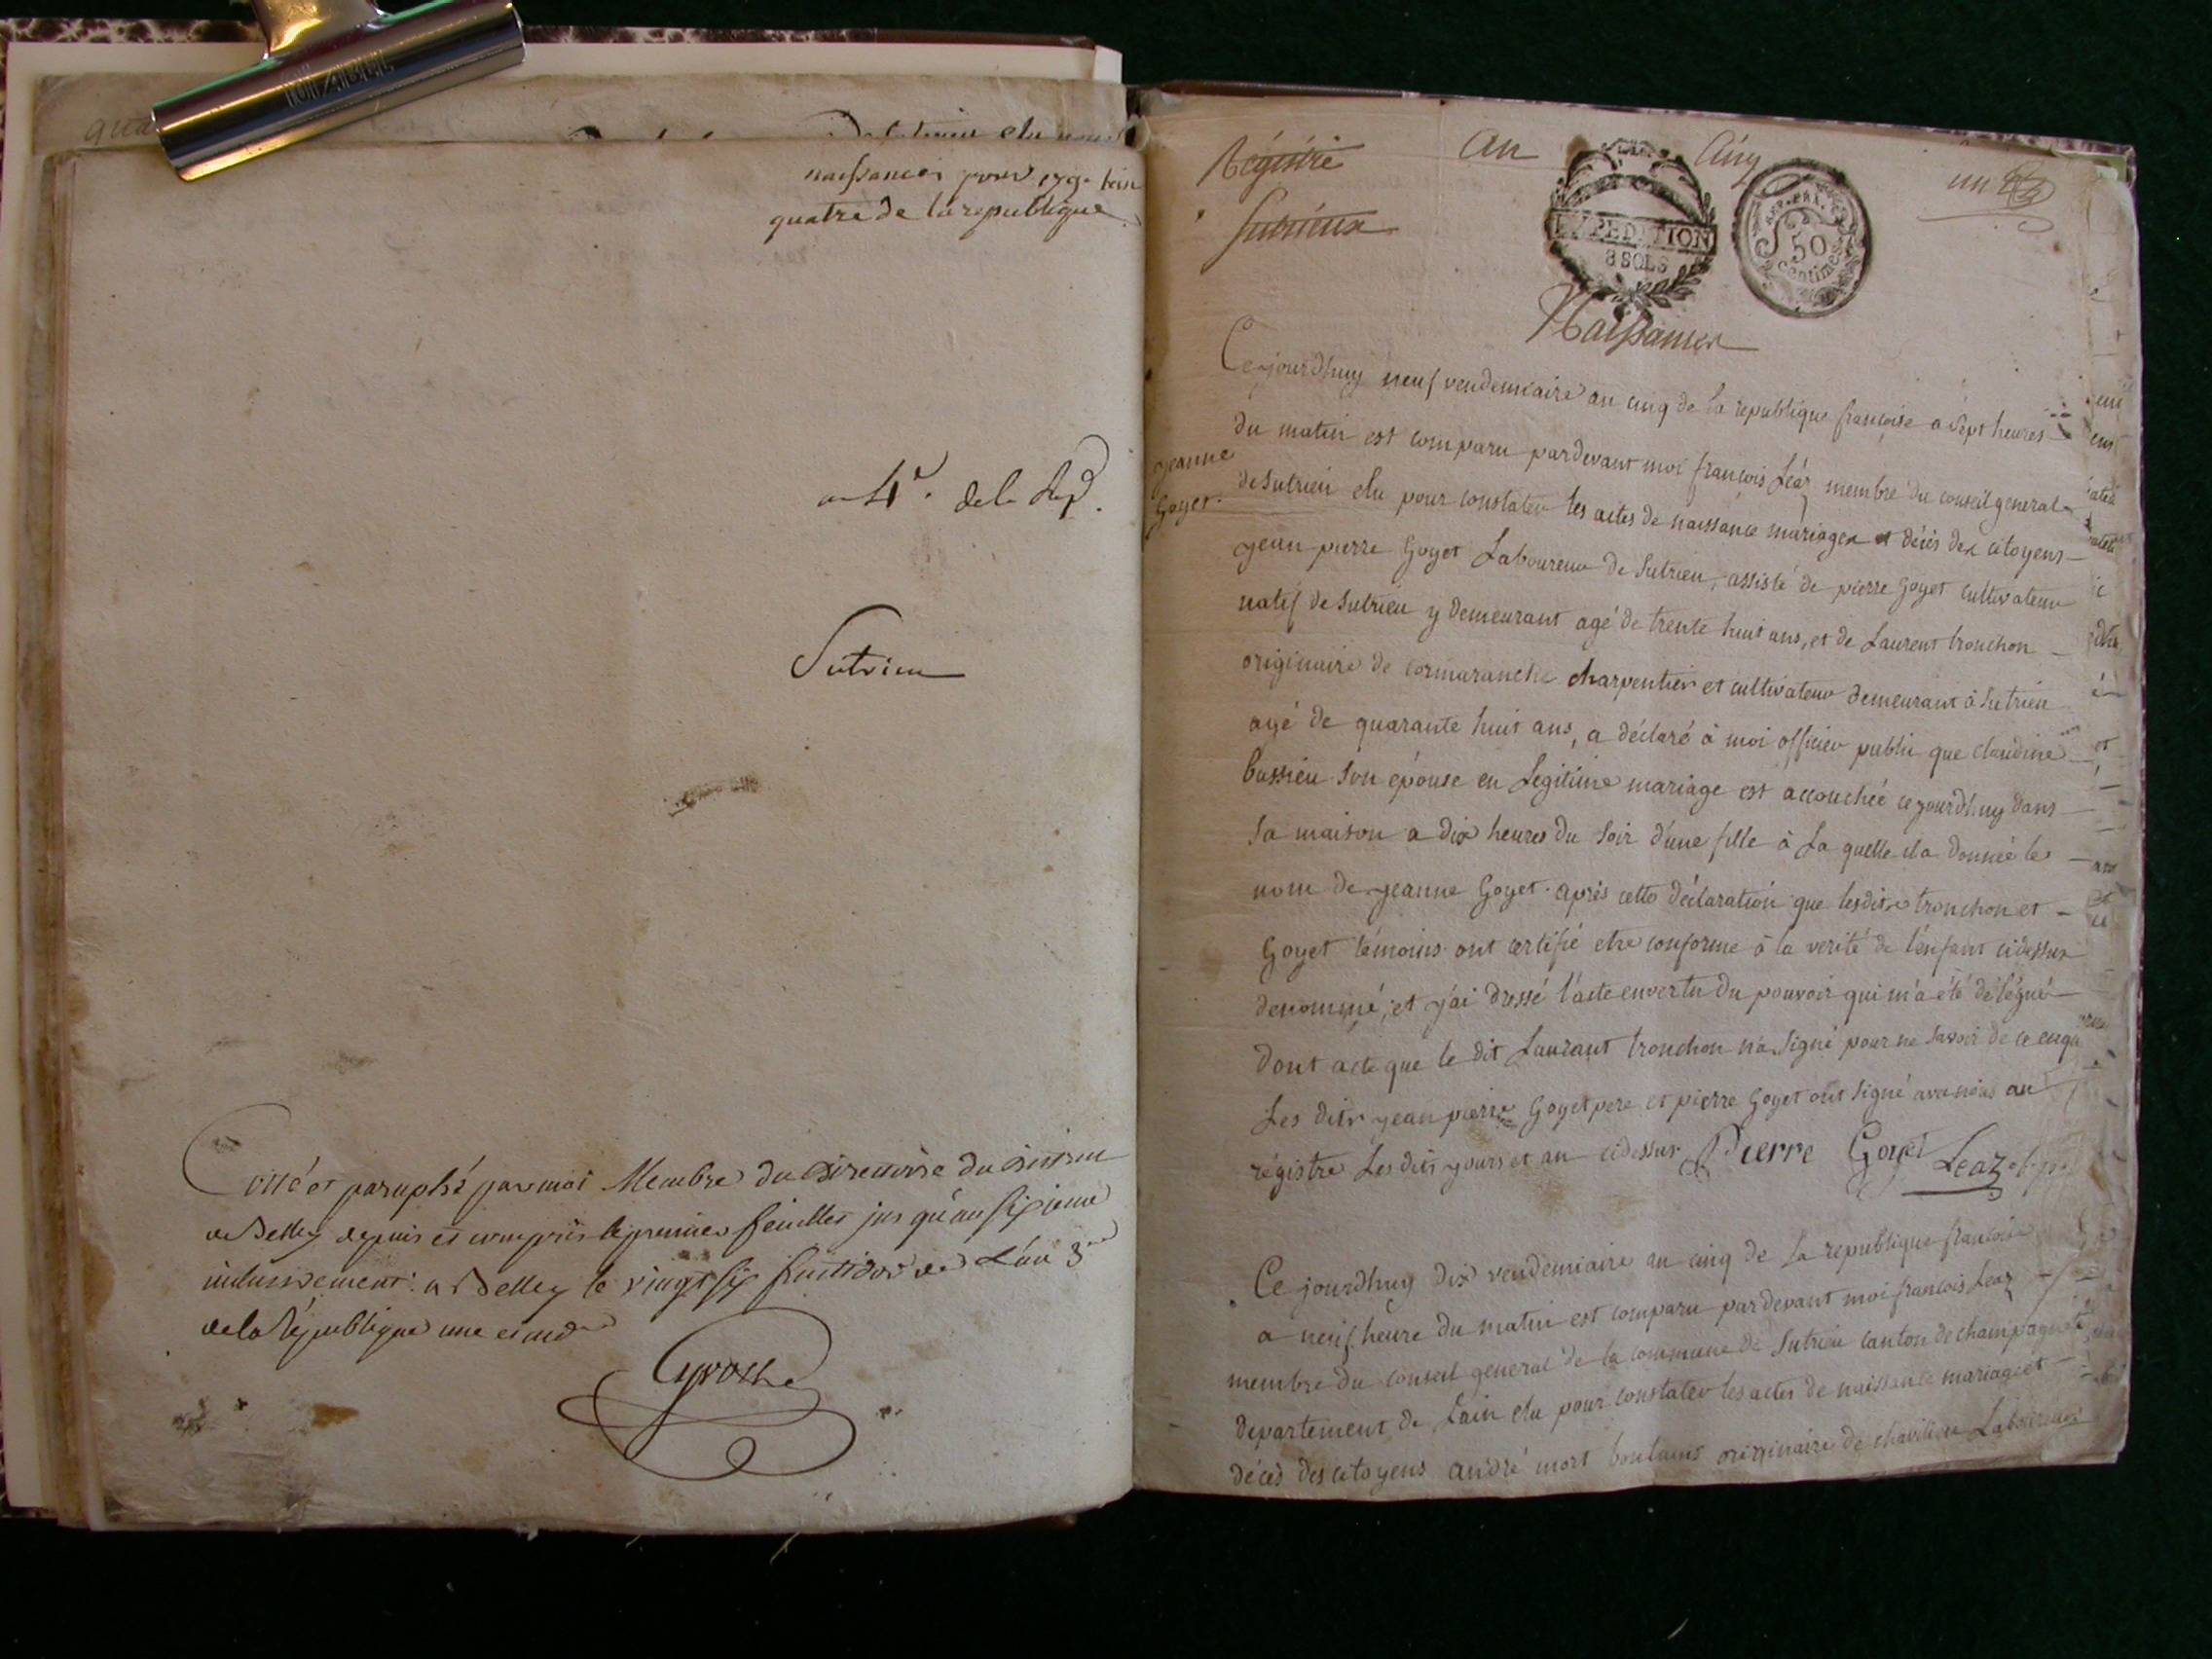 naissances pour 179.
quatre de la republique
an 4e. de la Rep.
Sutrieu
Cotté et paraphé par moi Membre du Directoire du District
de Belley depuis et compris le premier feuillet jusqu'au sixieme
inclusivement. a Belley le vingt six fructidor de L'an 3me
de la République une et ind
Régistre An Cinq un
Sutrieux
EXPEDITION
8 SOLS
REP. FRA.
50
Centimes
Naissances
Jeanne
Goyet.
Cejourdhuy neuf vendemiaire an cinq de la republique françoise a sept heures
du matin est comparu pardevant moi françois Léaz membre du conseil general
de Sutrieu elu pour constater les actes de naissance mariages et décès des citoyens
jean pierre Goyet Laboureur de Sutrieu, assisté de pierre Goyet cultivateur
natif de Sutrieu y demeurant agé de trente huit ans, et de Laurent tronchon
originaire de cormaranche charpentier et cultivateur demeurant à Sutrieu
agé de quarante huit ans, a déclaré à moi officier public que claudine
bussieu son epouse en Legitime mariage est accouchée cejourdhuy dans
sa maison a dix heures du soir d'une fille à La quelle il a donnée le
nom de jeanne Goyet. après cette déclaration que lesdits tronchon et
Goyet témoins ont certifié etre conforme à la verité de l'enfant cidessus
denommé, et j'ai dressé l'acte envertu du pouvoir qui m'a été délégué
dont acte que le dit Laurant tronchon n'a signé pour ne savoir de ce enqu
Les dits jean pierre Goyet pere et pierre Goyet ont signé avec nous au
régistre Les dits jours et an cidessus Pierre Goyet Leaz
Ce jourdhuy dix vendemiaire an cinq de la republique françoise
a neuf heure du matin est comparu pardevant moi francois Leaz
membre du conseil general de la commune de Sutrieu canton de champagne
departement de Lain elu pour constater les actes de naissance mariage et
décès des citoyens andré mort boulans originaire de Laboureur